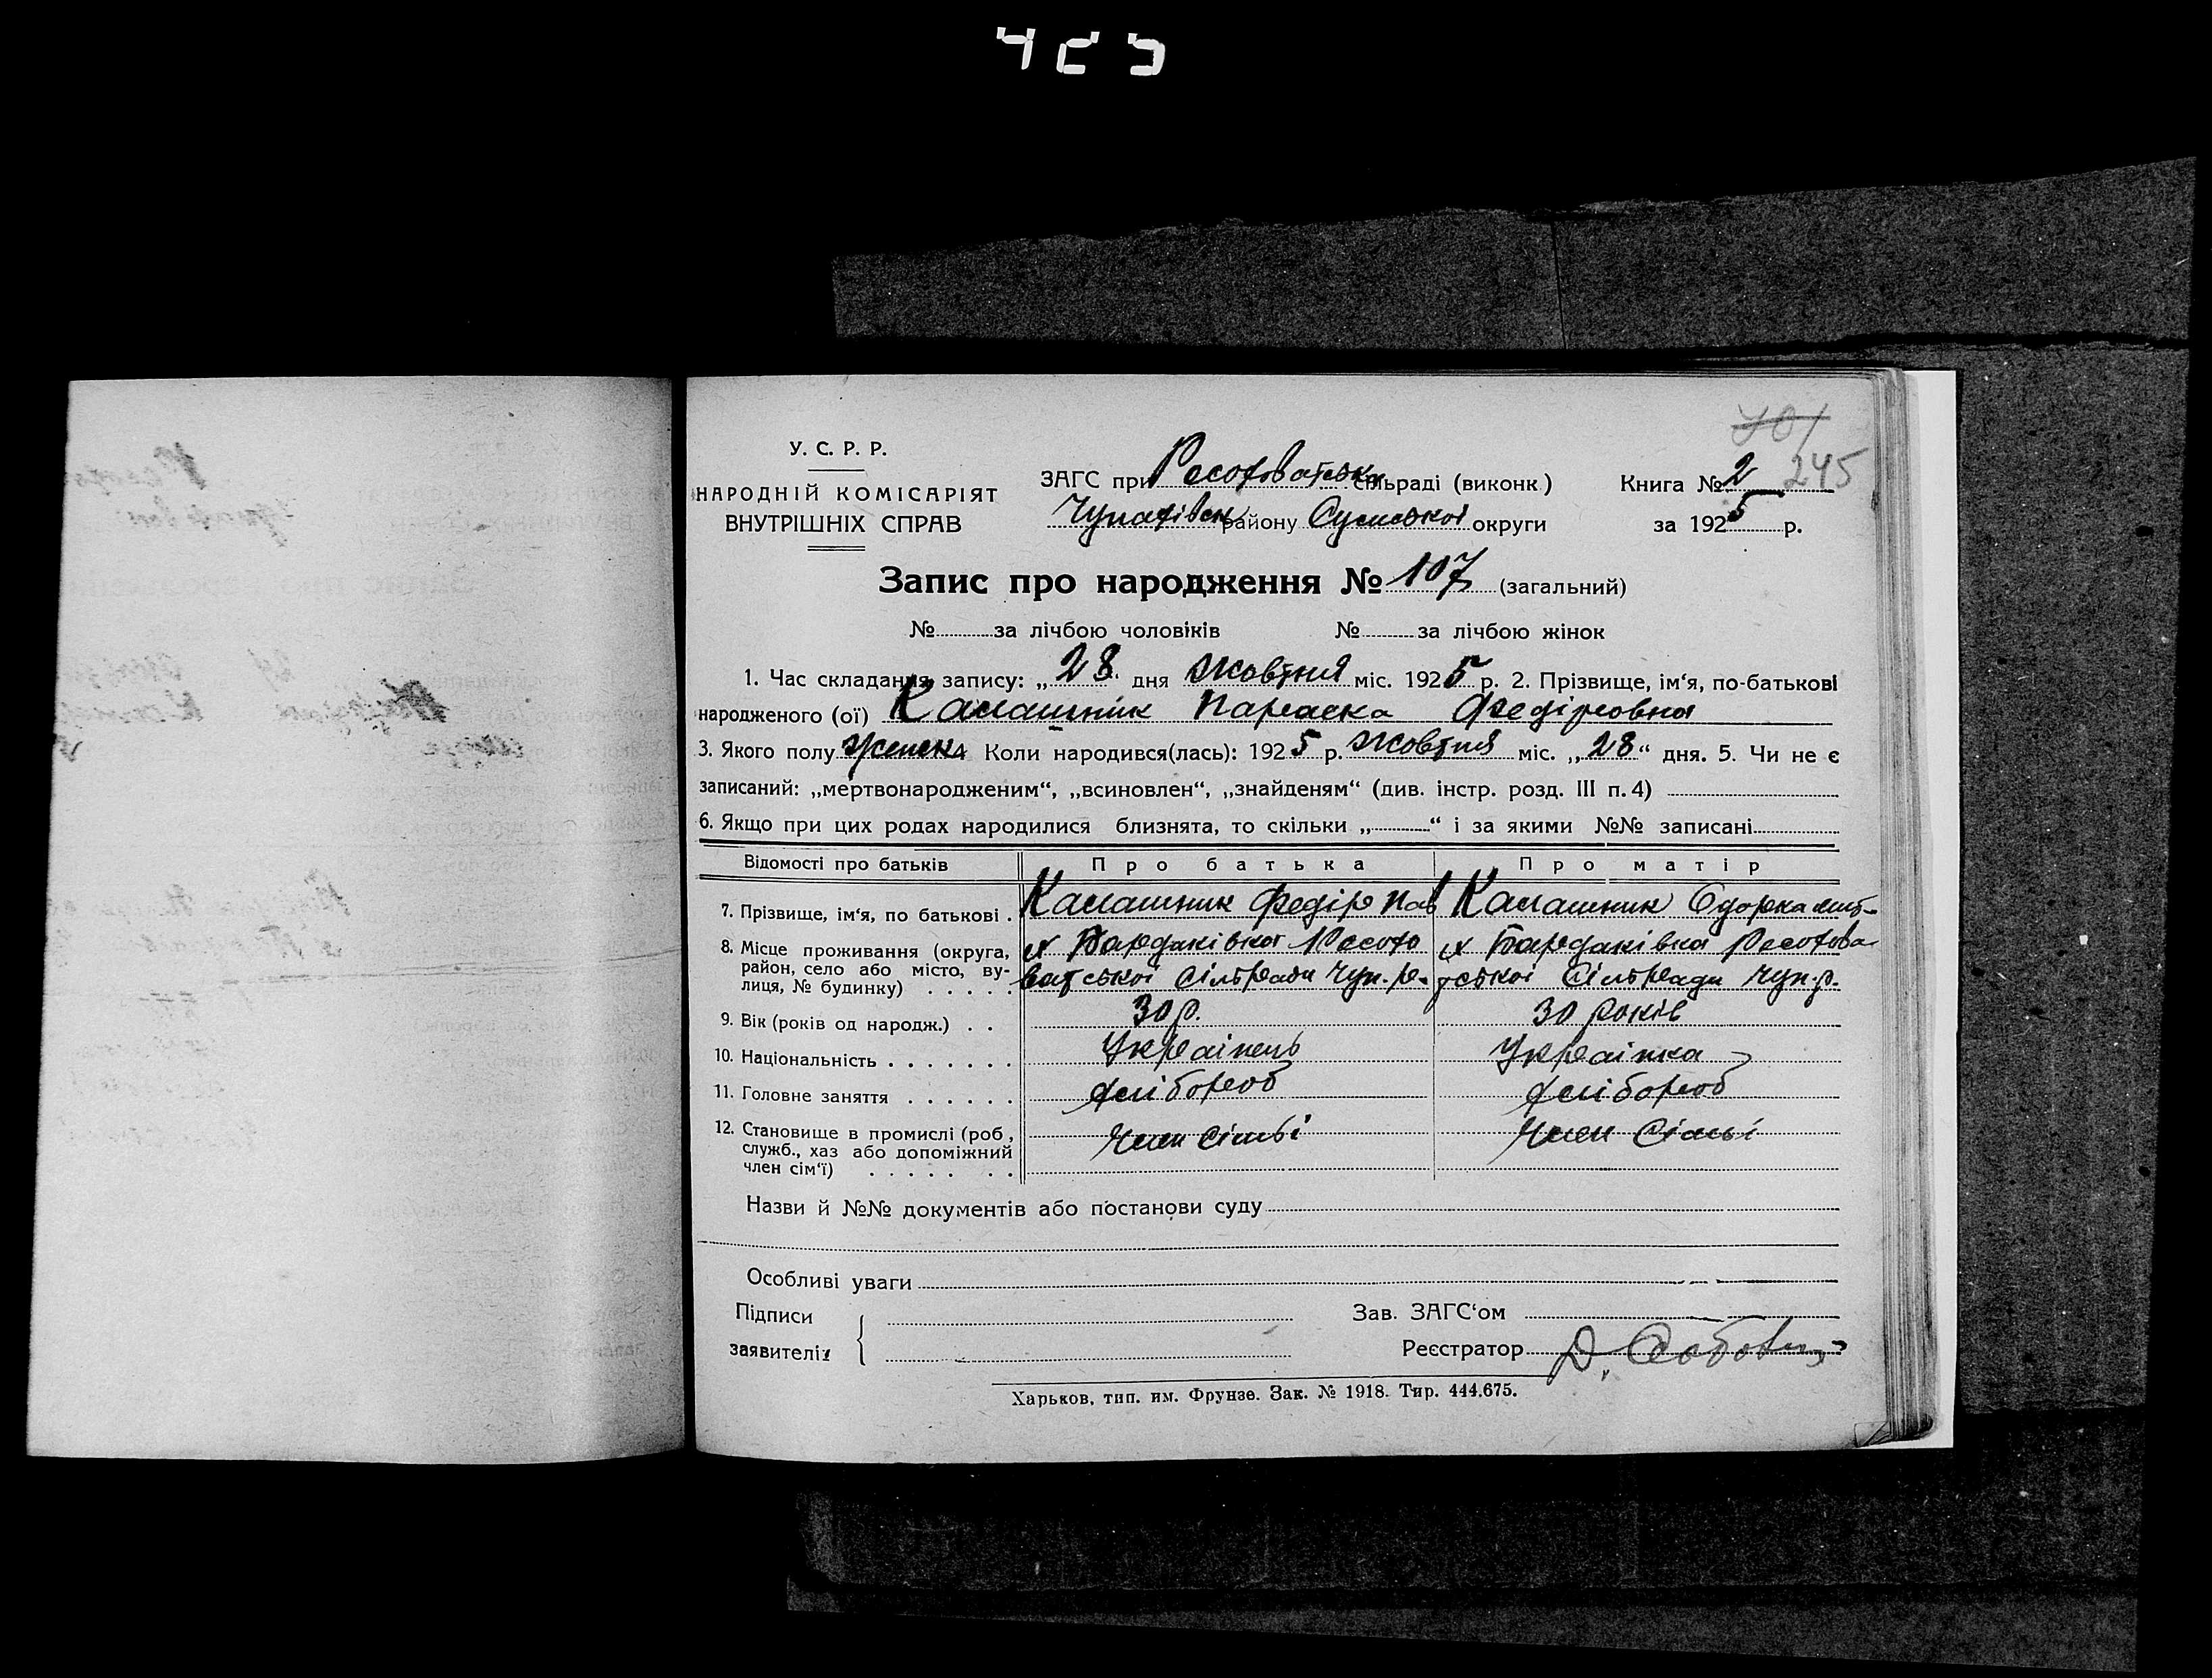 У. С. Р. Р.
НАРОДНІЙ КОМІСАРІЯТ
ВНУТРІШНІХ СПРАВ
ЗАГС при Рясотоватська сільраді (виконк)
Чупахівськ району Сумської округи
701
245
Книга № 2
за 1925 р.
Запис про народження № 107 (загальний)
№ за лічбою чоловіків № за лічбою жінок
1. Час складання запису: „28“ дня Жовтня міс. 1925 р. 2. Прізвище, ім'я, по-батькові
народженого (ої) Калашник Параска Федіровна
3. Якого полу женск 4 Коли народився(лась): 1925 р. Жовтня міс. „28“ дня. 5. Чи не є
записаний: „мертвонародженим“, „всиновлен“, „знайденям“ (див. інстр. розд. III п. 4)
6. Якщо при цих родах народилися близнята, то скільки „ “ і за якими №№ записані
Відомості про батьків Про батька Про матір
7. Прізвище, ім'я, по батькові . Калашник Федір Пав Калашник Одарка
8. Місце проживання (округа, район, село або місто, вулиця, № будинку) . . . . .
х Бардаківка Рясото
ватської Сільради Чуп. р.
х Бардаківка Рясотова
тської Сільради Чуп. р.
9. Вік (років од народж.) . . 30 р. 30 років
10. Національність . . . . . . . Українець Українка
11. Головне заняття . . . . . . хлібороб хлібороб
12. Становище в промислі (роб., служб., хаз або допоміжний член сім'ї) . . . . . . .
Член сімьі Член Сімьі
Назви й №№ документів або постанови суду
Особливі уваги
Підписи
заявителів
Зав. ЗАГС'ом
Реєстратор Д.
Харьков, тип. им. Фрунзе. Зак. № 1918. Тир. 444.675.